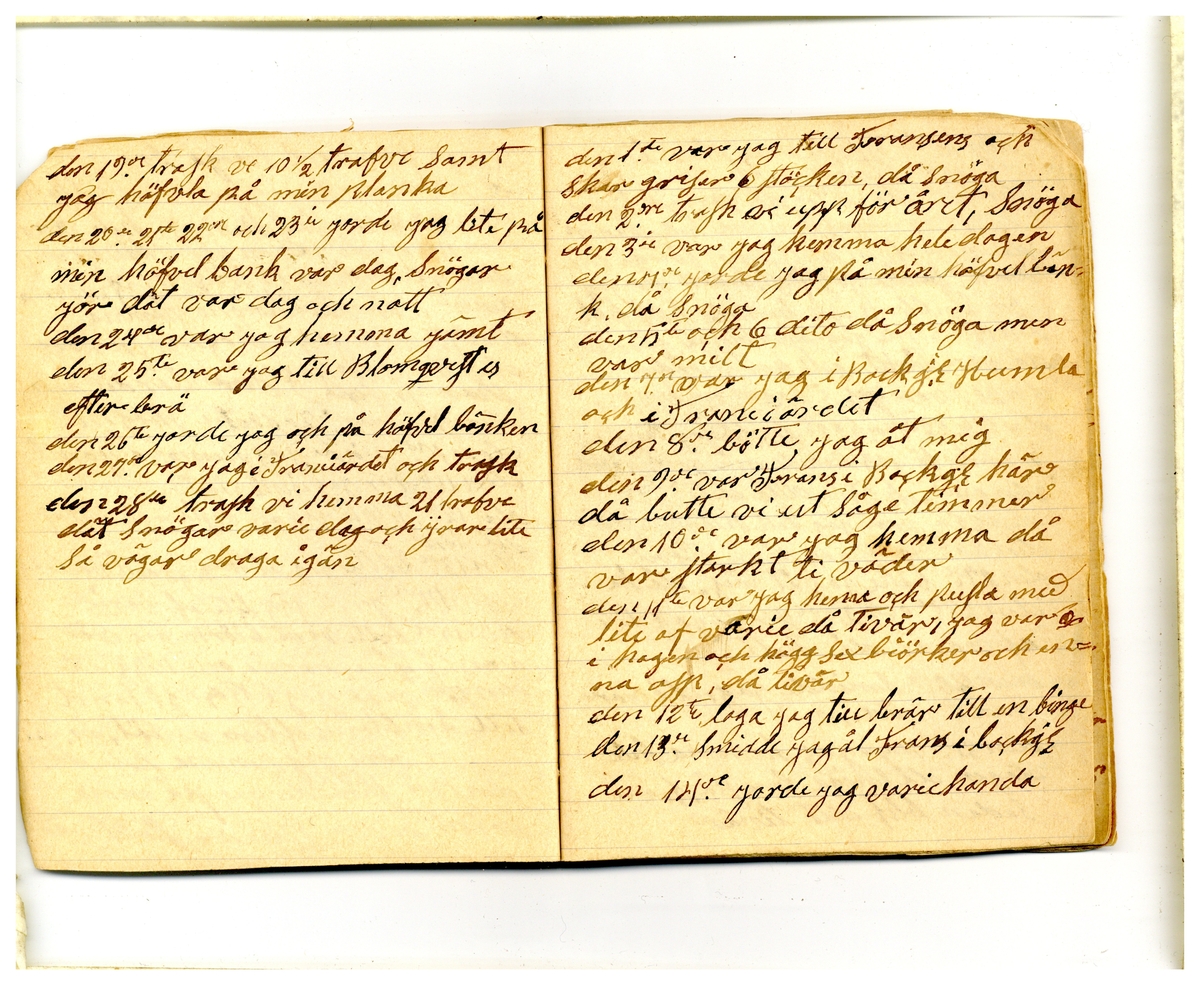 den 19de trask vi 10 1/2 trafve samt
jag höfvla på min planka
den 20de 21ste 22re och 23ie jorde jag lite på
min höfvel bank var dag, Snögar
jör dät var dag och natt
den 24de var jag hemma jämt
den 25te var jag till Blomqvist es
efter brä
den 26te jorde jag och på höfvel bänken
den 27de var jag i Franciärdet och trask
den 28de trask vi hemma 21 trafve
dät Snögar varie dag och yrar lite
så vägar draga igän
den 1ste var jag till Fransens och
Skar grisar 6 stöcken, då Snöga
den 2re trask vi upp för året, Snöga
den 3ie var jag hemma hele dagen
den 4de jorde jag på min höfvel bän=
k, då Snöga
den 5te och 6 dito då Snöga men
var milt
den 7de var jag i Humla
och i Franciärdet
den 8de bötte jag åt mig
den 9de var Frans i här
då butte vi ut Såge timmer
den 10de var jag hemma då
var starkt ti väder
den 11te var jag hema och pusla med
lite af varie då tivär, jag var
i hagen och högg sex biörker och en=
na asp, då tivär
den 12te laga jag till brär till en binge
den 13de Smidde jag åt Frans i
den 14de jorde jag varichanda